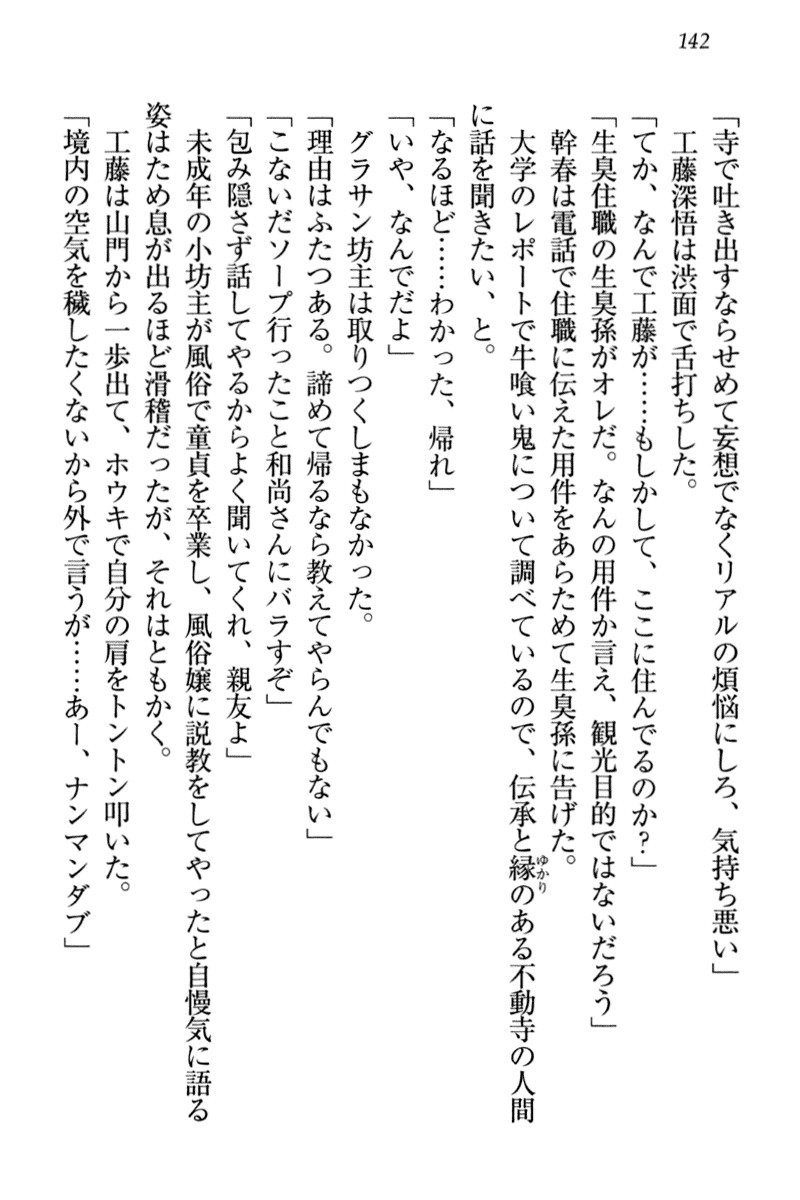 142
「寺で吐き出すならせめて妄想でなくリアルの煩悩にしろ、気持ち悪い」
工藤深悟は渋面で舌打ちした。
「てか、なんで工藤が……もしかして、ここに住んでるのか？」
「生臭住職の生臭孫がオレだ。なんの用件か言え、観光目的ではないだろう」
幹春は電話で住職に伝えた用件をあらためて生臭孫に告げた。
大学のレポートで牛喰い鬼について調べているので、伝承と縁のある不動寺の人間
ゆかり
に話を聞きたい、と。
「なるほど……わかった、帰れ」
「いや、なんでだよ」
グラサン坊主は取りつくしまもなかった。
「理由はふたつある。諦めて帰るなら教えてやらんでもない」
「こないだソープ行ったこと和尚さんにバラすぞ」
「包み隠さず話してやるからよく聞いてくれ、親友よ」
未成年の小坊主が風俗で童貞を卒業し、風俗嬢に説教をしてやったと自慢気に語る
姿はため息が出るほど滑稽だったが、それはともかく。
工藤は山門から一歩出て、ホウキで自分の肩をトントン叩いた。
「境内の空気を穢したくないから外で言うが……あー、ナンマンダブ」